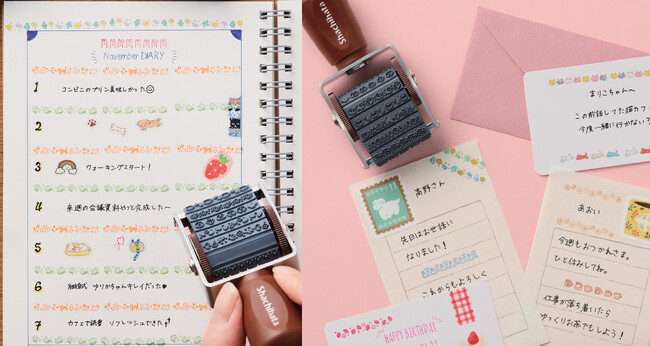 November DIARY
1 コンビニのプリン美味しかった
2
3 ウォーキングスタート!
4 来週の会議資料やっと完成した〜
5
6 結婚式 ゆりかちゃんキレイだった
7 カフェで読書 リフレッシュできた
Shachihata
Shachihata
まりこちゃんへ
この前話してた猫カフェ
今度一緒に行かない?
高野さん
先日はお世話に
なりました!
これからもよろしく
HAPPY BIRTHDAY
あおい
今週もおつかれさま。
ひと休みしてね。
仕事が落ち着いたら
ゆっくりお茶でもしよう!